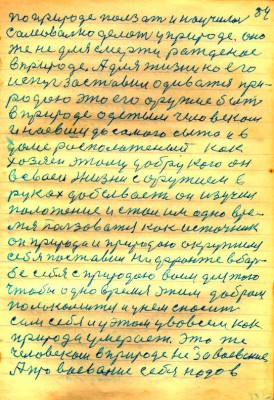 84
по природе ползат и научился
само вално делат у природе. оно
же не для смерти рожденое
в природе. А для жизни но его
испуг заставил одиватся при-
родою это его оружие быть
в природе одетым человеком
и наевшим до самого сыта и в
доме роспологеный как
хозяин этому добру кого он
в своей жизни с оружием в
руках добевает он изучил
положение и стал им одно вре-
мя ползоватся как источник
он природа и природою окружил
себя поставил на фронте в бор-
бе себя с природою воли для того
чтобы одно время этим добром
полюбоватся и у нем спосит
сам себя и у этом двовсем как
природа умерает это же
человеком в природе не завоевание
А про воевание себя подов